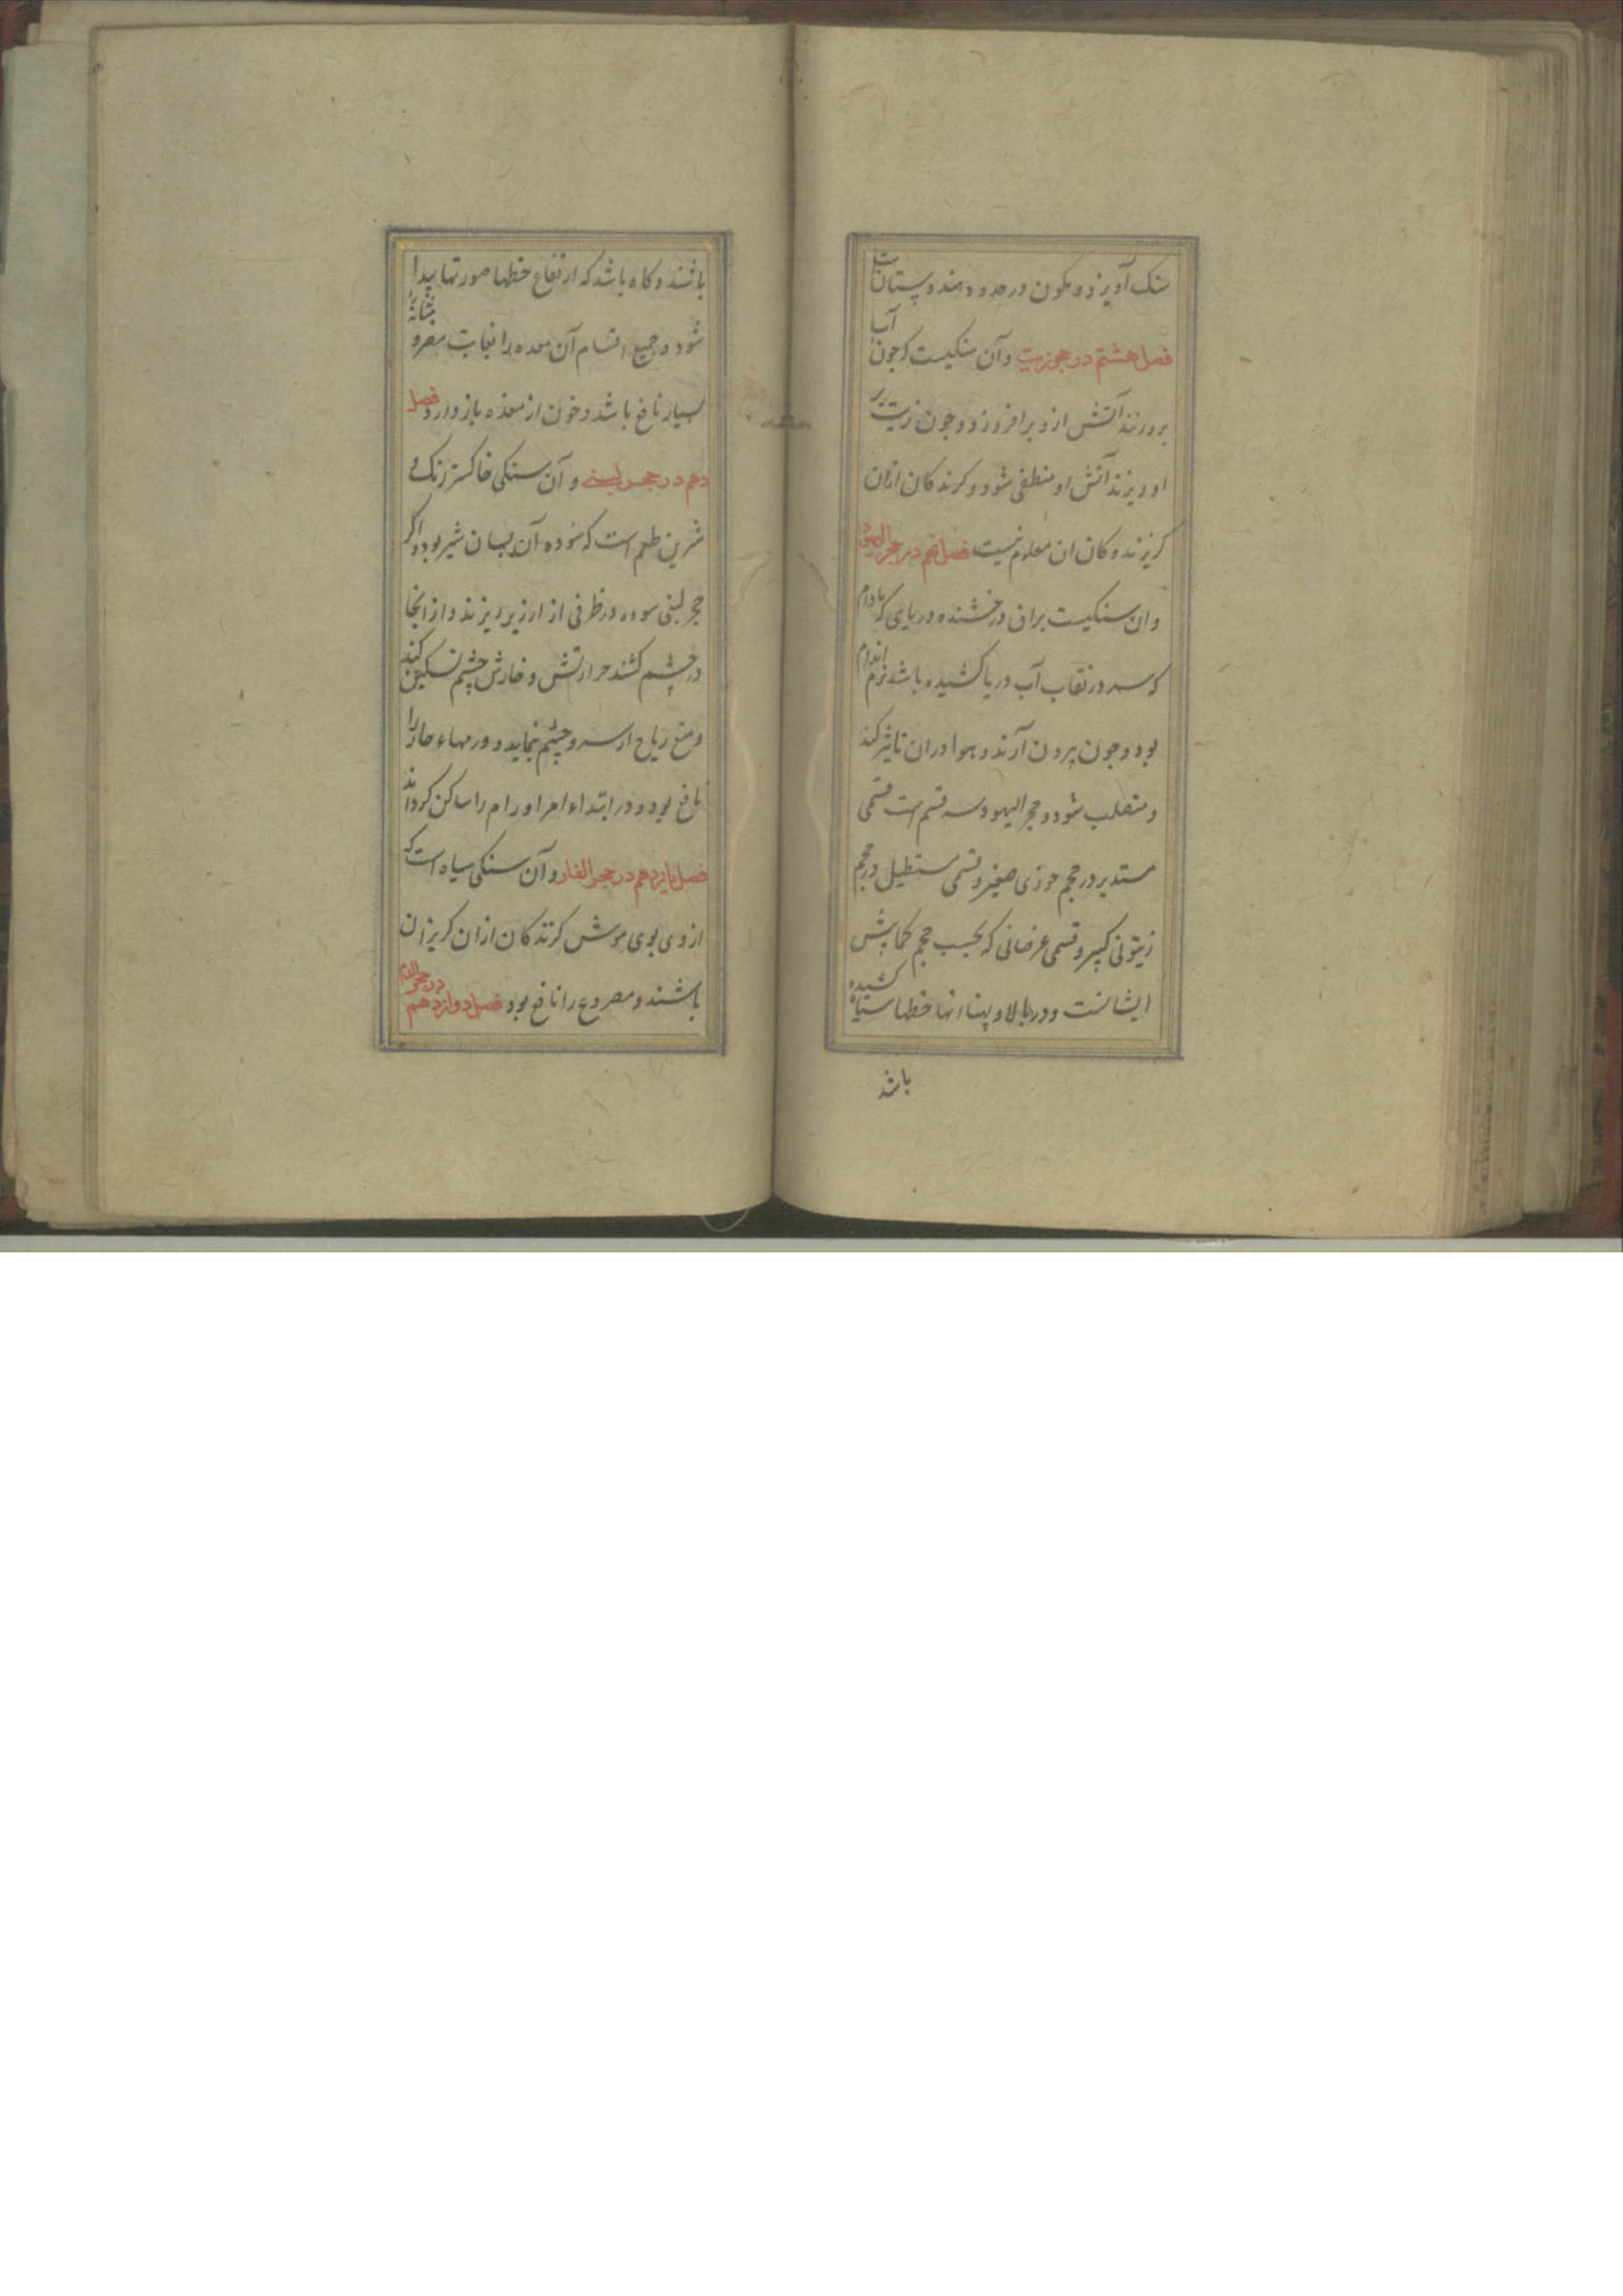 سنک آویزد و مکون در حدود هندوستانست
فصل هشتم در حجر زیت و آن سنکیست که جون آب
برو ریزند آتش ازو برافروزد و جون زیت بر
او ریزند آتش او منطفی شود و کزندکان ازان
کریزند و کان ان معلوم نیست فصل نهم در حجر الیهود
و ان سنکیست براق درخشنده دریایی که مادام
که سر در نقاب آب دریا کشیده باشد نرم اندام
بود و جون بیرون آرند و هوا در ان تاثیر کند
و متصلب شود و حجر الیهود سه قسم است قسمی
مستدیر در حجم جوزی صغیر و قسمی مستطیل در حجم
زیتونی کبیر و قسمی عرضانی که بحسب حجم کمابیش
ایشانست و در بالا و پهناء انها خطها سیاه کشیده
باشد
باشند و کاه باشد که از تقاع خطها صورتها پیدا
شود و جمیع اقسام آن معده را بغایت مضر و مثانه را
بسیار نافع باشد و خون از معده باز دارد فصل
دهم در حجر لبنی و آن سنکی خاکستر رنک و
شیرین طعم است که سوده آن بسان شیر بود و اکر
حجر لبنی سوده در ظرفی از ارزیز ریزند و از انجا
در چشم کشند حرارتش و خارش چشم تسکین کند
و منع ریاح از سر و چشم نماید و ورمهاء حاد را
نافع بود و در ابتداء امر اورام را ساکن کرداند
فصل یازدهم در حجر الفار و آن سنکی سیاه است که
از وی بوی موش کزندکان ازان کریزان
باشند و مصروع را نافع بود فصل دوازدهم در حجر